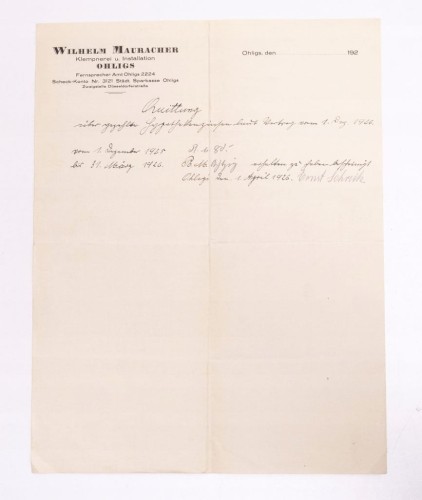 WILHELM MAURACHER
Klempnerei u. Installation
OHLIGS
Fernsprecher Amt Ohligs 2224
Scheck-Konto Nr. 3121 Städt. Sparkasse Ohligs
Zweigstelle Düsseldorferstraße
Ohligs, den 192
Quittung
über gezahlte Hypothekenzinsen laut Vertrag vom 1. Dez. 1925.
vom 1. Dezember 1925
bis 31. März 1926. erhalten zu haben bescheinigt
Ohligs den 1. April 1926. Ernst